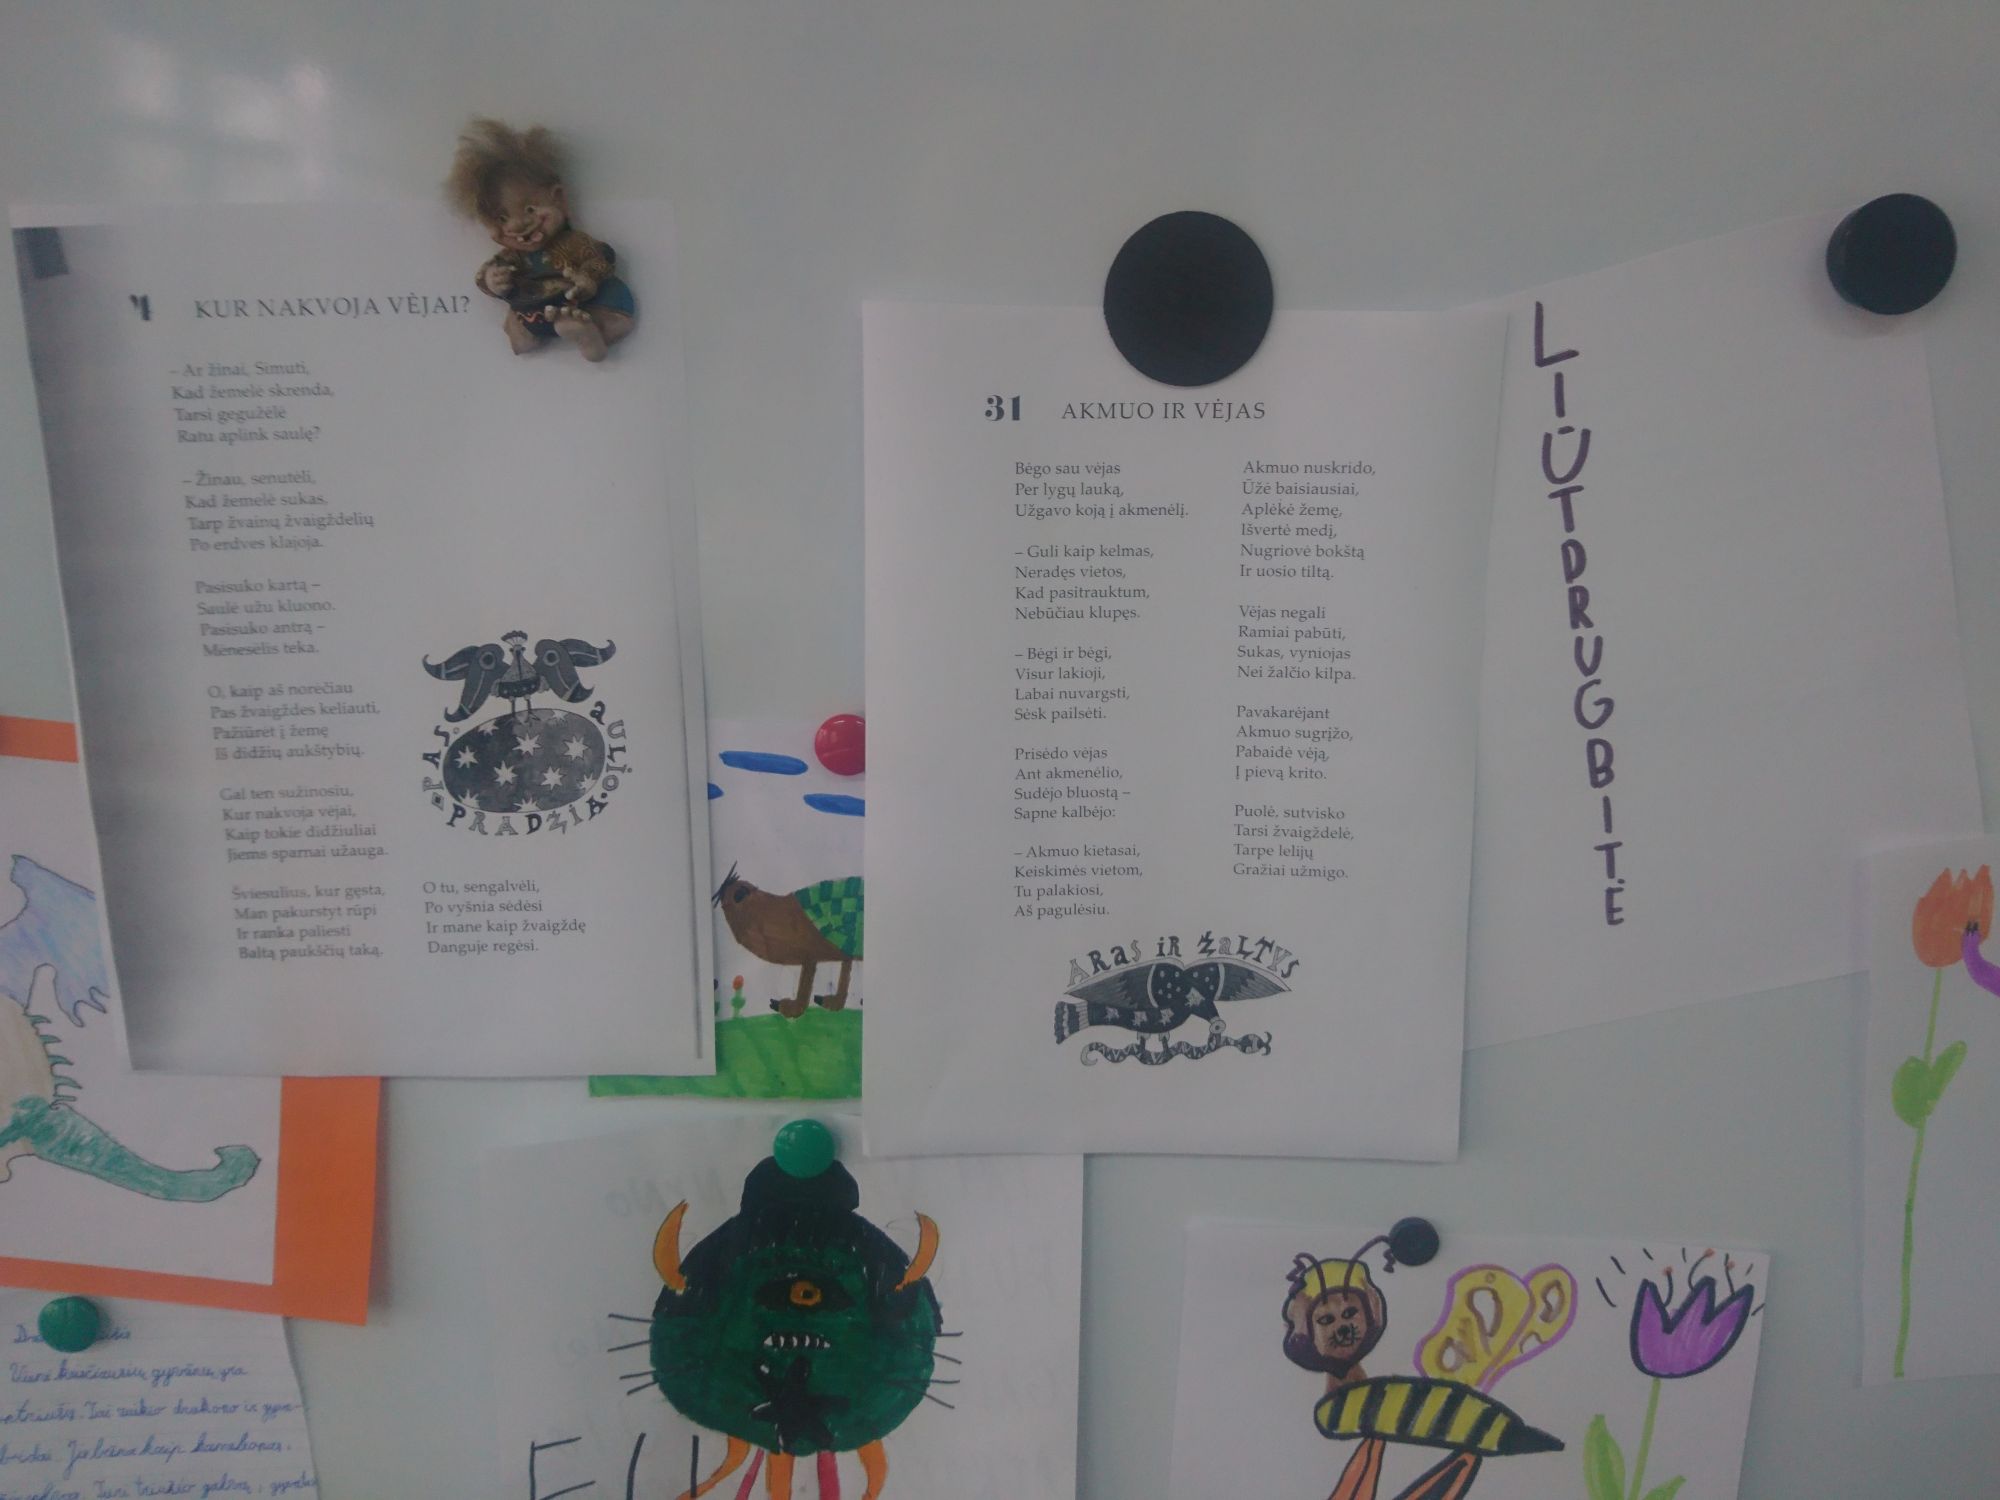 4 KUR NAKVOJA VĖJAI?
– Ar žinai, Simuti,
Kad žemelė skrenda,
Tarsi gegužėlė
Ratu aplink saulę?
– Žinau, senutėli,
Kad žemelė sukas,
Tarp žvainų žvaigždelių
Po erdves klajoja.
Pasisuko kartą –
Saulė užu kluono.
Pasisuko antrą –
Mėnesėlis teka.
O, kaip aš norėčiau
Pas žvaigždes keliauti,
Pažiūrėt į žemę
Iš didžių aukštybių.
Gal ten sužinosiu,
Kur nakvoja vėjai,
Kaip tokie didžiuliai
Jiems sparnai užauga.
Šviesulius, kur gęsta,
Man pakurstyt rūpi
Ir ranka paliesti
Baltą paukščių taką.
O tu, sengalvėli,
Po vyšnia sėdėsi
Ir mane kaip žvaigždę
Danguje regėsi.
PASAULIO PRADŽIA
31 AKMUO IR VĖJAS
Bėgo sau vėjas
Per lygų lauką,
Užgavo koją į akmenėlį.
– Guli kaip kelmas,
Neradęs vietos,
Kad pasitrauktum,
Nebūčiau klupęs.
– Bėgi ir bėgi,
Visur lakioji,
Labai nuvargsti,
Sėsk pailsėti.
Prisėdo vėjas
Ant akmenėlio,
Sudėjo bluostą –
Sapne kalbėjo:
– Akmuo kietasai,
Keiskimės vietom,
Tu palakiosi,
Aš pagulėsiu.
Akmuo nuskrido,
Ūžė baisiausiai,
Aplėkė žemę,
Išvertė medį,
Nugriovė bokštą
Ir uosio tiltą.
Vėjas negali
Ramiai pabūti,
Sukas, vyniojas
Nei žalčio kilpa.
Pavakarėjant
Akmuo sugrįžo,
Pabaidė vėją,
Į pievą krito.
Puolė, sutvisko
Tarsi žvaigždelė,
Tarpe lelijų
Gražiai užmigo.
ARAS IR ŽALTYS
LIŪTDRUGBITĖ
gyvūnų yra
Tai vaikio drakono ir
kaip
Turi